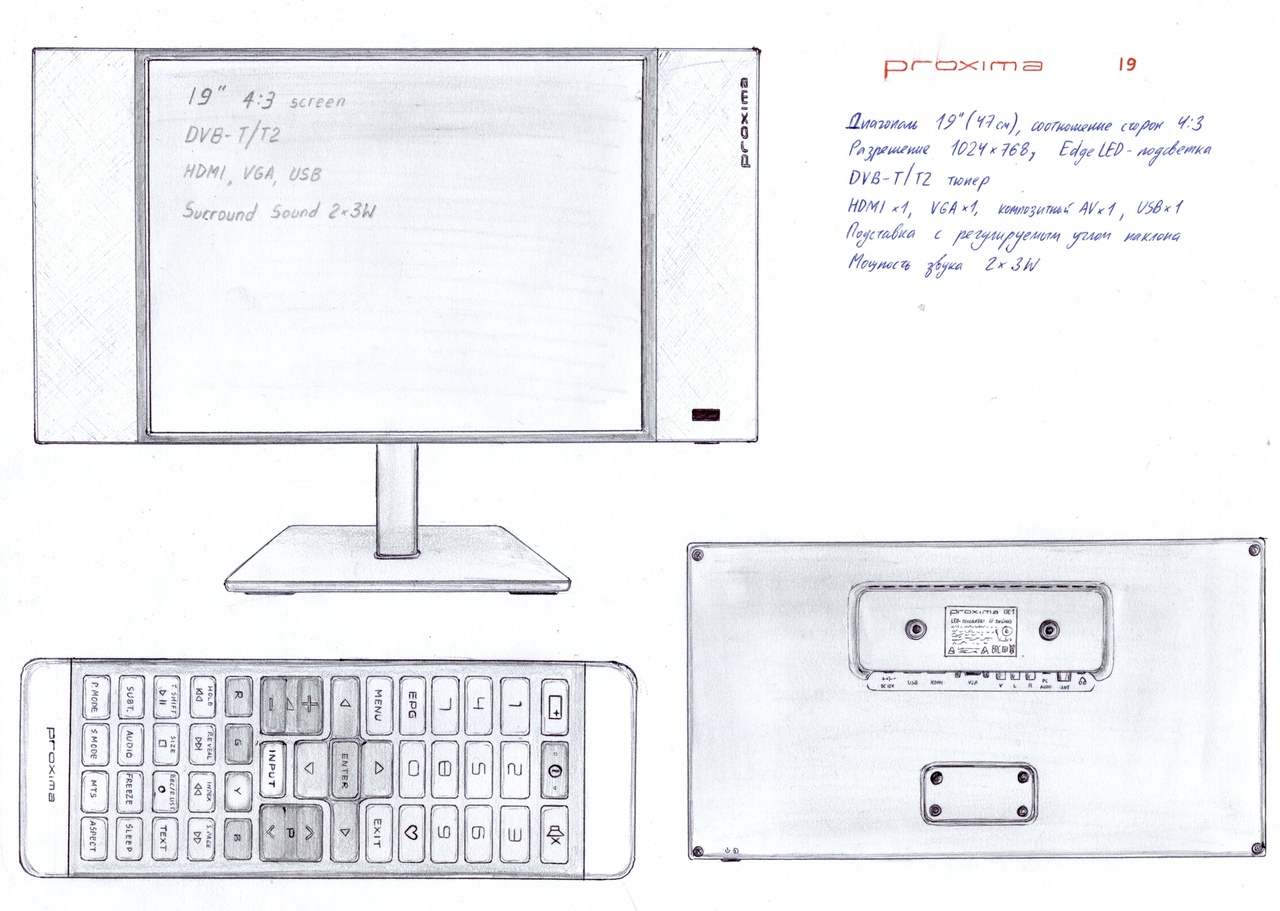 19" 4:3 screen
DVB-T/T2
HDMI, VGA, USB
Surround Sound 2×3W
proxima
proxima 19
Диагональ 19" (47 см), соотношение сторон 4:3
Разрешение 1024×768, Edge LED-подсветка
DVB-T/T2 тюнер
HDMI ×1, VGA ×1, композитный AV×1, USB×1
Подставка с регулируемым углом наклона
Мощность звука 2×3W
proxima
USB HDMI VGA V L R PC AUDIO
1 2 3
4 5 6
7 8 9
EPG 0
MENU EXIT
ENTER
INPUT
+ - P
R G Y B
HOLD REVEAL INDEX S.PAGE
T.SHIFT SIZE REC/R.LIST TEXT
SUBT. AUDIO FREEZE SLEEP
P.MODE S.MODE MTS ASPECT
proxima